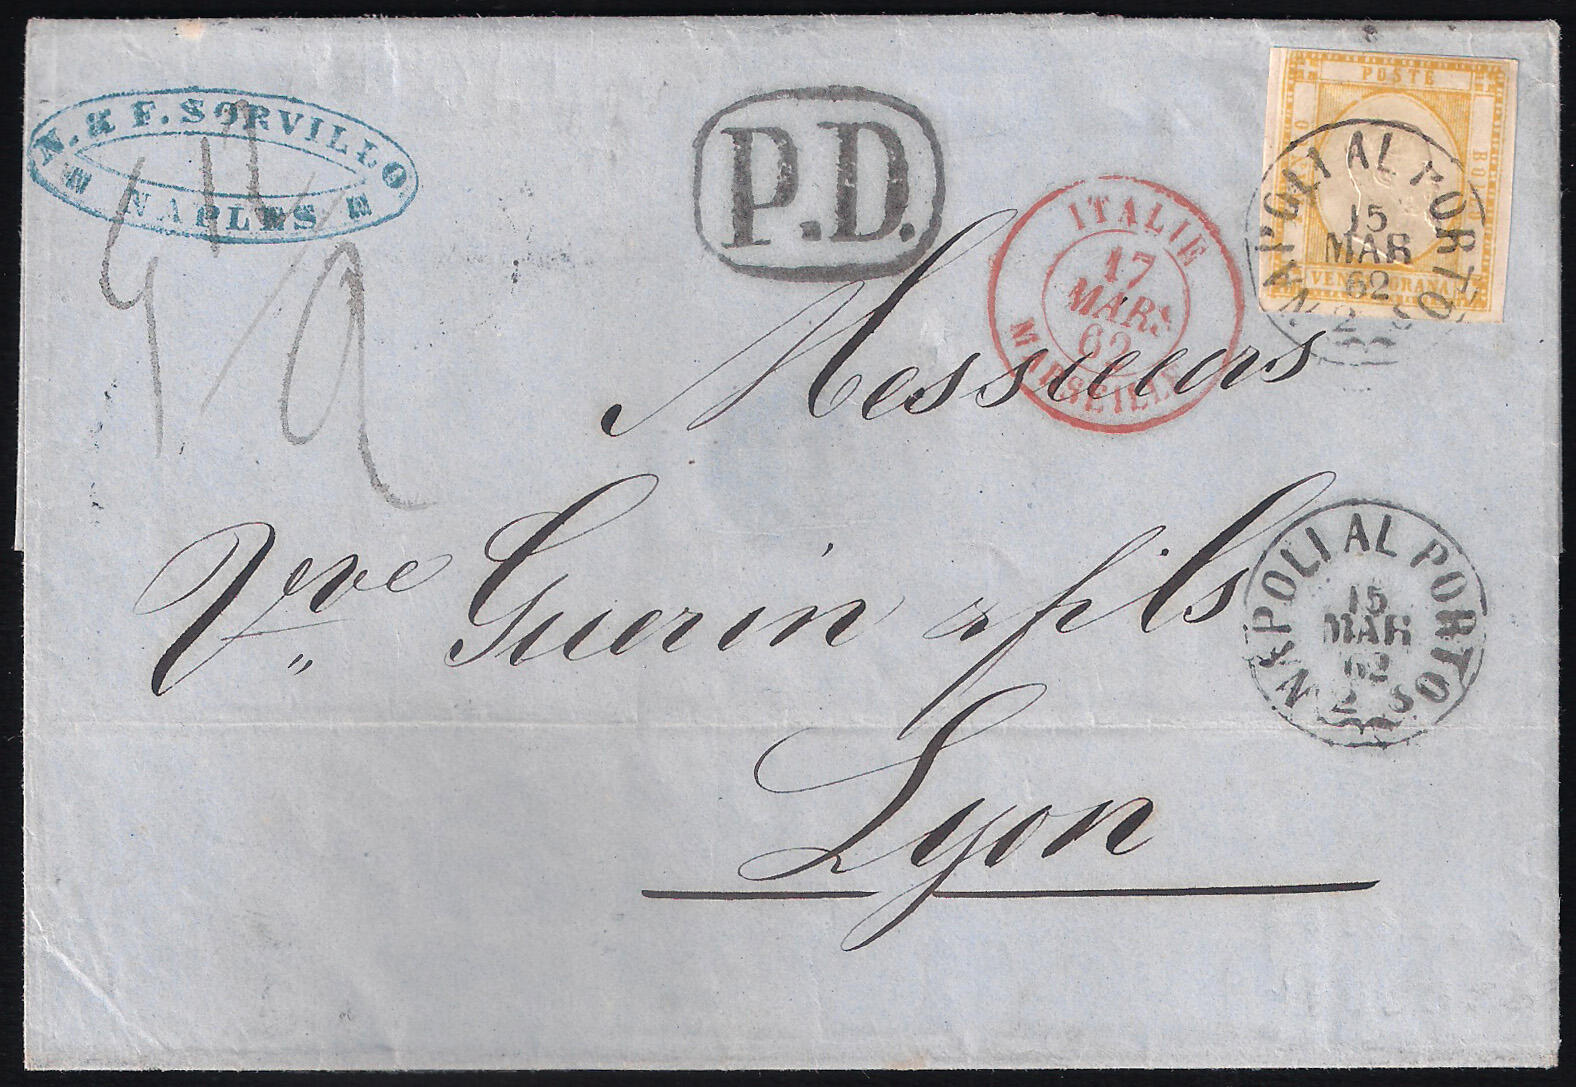 N. & F. SORVILLO
NAPLES
P.D.
ITALIE
17
MARS
62
MARSEILLE
POSTE
BOLLO
NAPOLI AL PORTO
15
MAR
62
2 S
Messieurs
Vve Guerin & fils
Lyon
NAPOLI AL PORTO
15
MAR
62
2 S